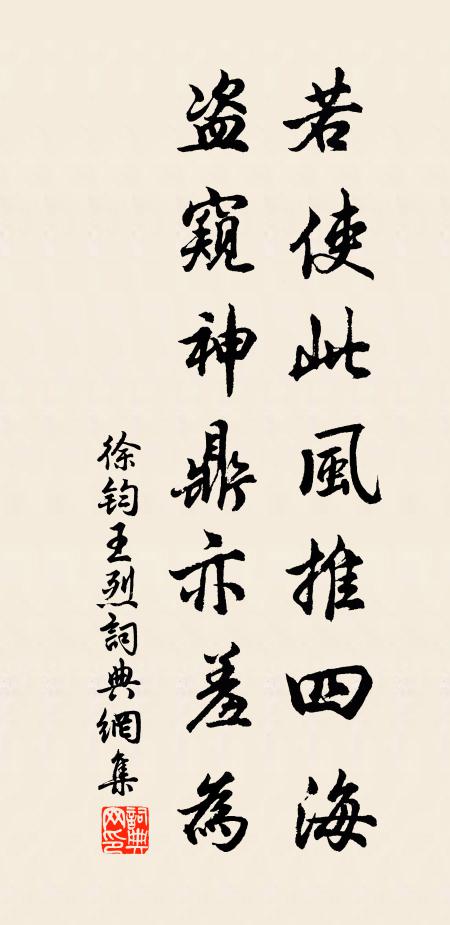 若使此風推四海
盜窺神鼎亦羞為
徐鈞王烈詞典網集
詞典網印